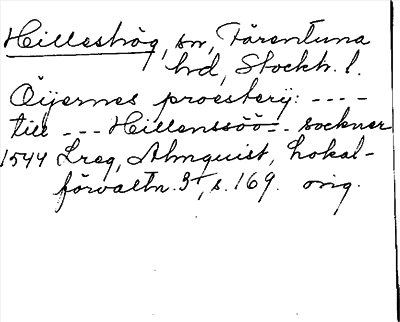 Hilleshög, sn, Färentuna
hrd, Stockh. l.
Öÿernes proestery: ----
till --- Hillenssöö= sockner
1544 Lreg, Almquist, Lokal-
förvaltn. 3, s. 169. orig.